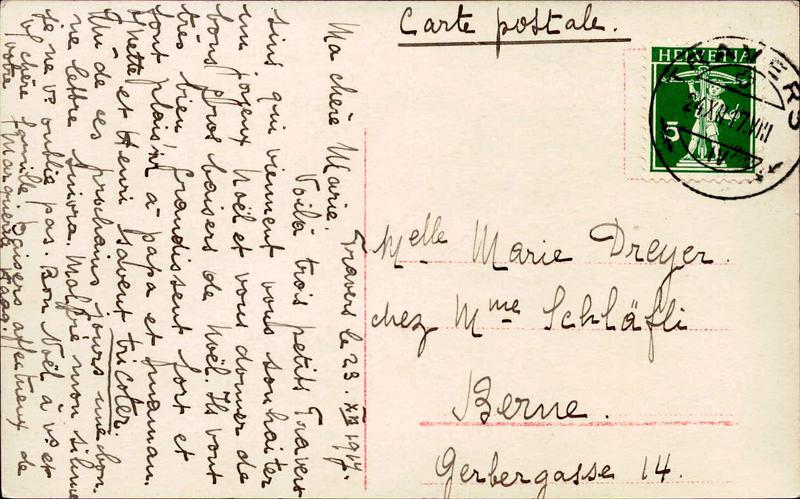 Carte postale.
HELVETIA
5
TRAVERS
Travers le 23. XII 1917.
Ma chère Marie.
Voilà trois petits Travers
sins qui viennent vous souhaiter
un joyeux Noël et vous donner de
bons gros baisers de Noël. Ils vont
très bien, grandissent fort et
font plaisir à papa et maman.
Ynette et Henri savent tricoter.
Un de ces prochains jours une lon.
ne lettre suivra. Malgré mon silence
je ne vs oublie pas. Bon Noël à vs et
vs chère famille. Baisers affectueux de
votre Marguerite
Melle Marie Dreyer.
chez Mme Schläfli
Berne.
Gerbergasse 14.